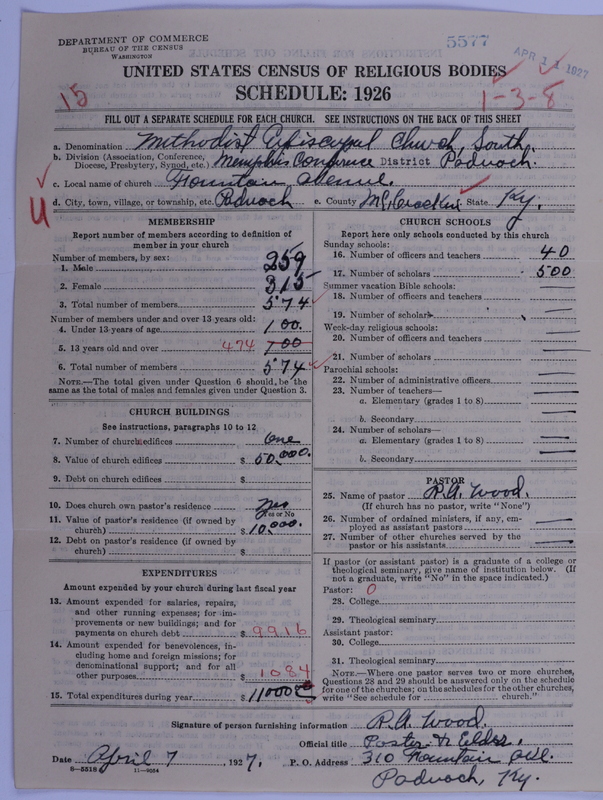 DEPARTMENT OF COMMERCE
BUREAU OF THE CENSUS
WASHINGTON
5577
APR 11 1927
UNITED STATES CENSUS OF RELIGIOUS BODIES
SCHEDULE: 1926
15
1-3-8
FILL OUT A SEPARATE SCHEDULE FOR EACH CHURCH. SEE INSTRUCTIONS ON THE BACK OF THIS SHEET
a. Denomination Methodist Episcopal Church, South.
b. Division (Association, Conference, Diocese, Presbytery, Synod, etc.) Memphis Conference District Paducah.
c. Local name of church Fountain Avenue.
d. City, town, village, or township, etc. Paducah e. County McCracken State Ky.
4
MEMBERSHIP
Report number of members according to definition of
member in your church
Number of members, by sex:
1. Male 259
2. Female 315
3. Total number of members 574
Number of members under and over 13 years old:
4. Under 13 years of age 100.
5. 13 years old and over 474 100
6. Total number of members 574
NOTE.—The total given under Question 6 should be the
same as the total of males and females given under Question 3.
CHURCH BUILDINGS
See instructions, paragraphs 10 to 12
7. Number of church edifices One
8. Value of church edifices $ 50,000.
9. Debt on church edifices $
10. Does church own pastor's residence Yes
Yes or No
11. Value of pastor's residence (if owned by
church) $ 10,000.
12. Debt on pastor's residence (if owned by
church) $
EXPENDITURES
Amount expended by your church during last fiscal year
13. Amount expended for salaries, repairs,
and other running expenses; for im-
provements or new buildings; and for
payments on church debt $ 9916
14. Amount expended for benevolences, in-
cluding home and foreign missions; for
denominational support; and for all
other purposes $ 1084
15. Total expenditures during year $ 11000
CHURCH SCHOOLS
Report here only schools conducted by this church
Sunday schools:
16. Number of officers and teachers 40
17. Number of scholars 500
Summer vacation Bible schools:
18. Number of officers and teachers —
19. Number of scholars —
Week-day religious schools:
20. Number of officers and teachers —
21. Number of scholars —
Parochial schools:
22. Number of administrative officers —
23. Number of teachers—
a. Elementary (grades 1 to 8) —
b. Secondary —
24. Number of scholars—
a. Elementary (grades 1 to 8) —
b. Secondary —
PASTOR
25. Name of pastor R.A. Wood.
(If church has no pastor, write "None")
26. Number of ordained ministers, if any, em-
ployed as assistant pastors —
27. Number of other churches served by the
pastor or his assistants —
If pastor (or assistant pastor) is a graduate of a college or
theological seminary, give name of institution below. (If
not a graduate, write "No" in the space indicated.)
Pastor: 0
28. College
29. Theological seminary
Assistant pastor:
30. College
31. Theological seminary
NOTE.—Where one pastor serves two or more churches,
Questions 28 and 29 should be answered only on the schedule
for one of the churches; on the schedules for the other churches,
write "See schedule for church."
Signature of person furnishing information R.A. Wood.
Official title Pastor & Elder.
Date April 7, 1927. P. O. Address 310 Fountain Ave.
8—5518 11—9054
Paducah, Ky.